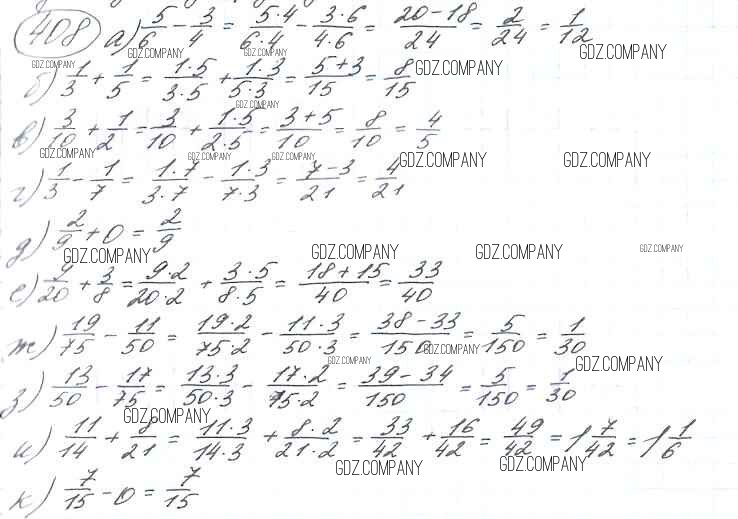 408 а) 5/6 - 3/4 = 5·4/6·4 - 3·6/4·6 = 20-18/24 = 2/24 = 1/12
GDZ.COMPANY GDZ.COMPANY GDZ.COMPANY
GDZ.COMPANY GDZ.COMPANY
б) 1/3 + 1/5 = 1·5/3·5 + 1·3/5·3 = 5+3/15 = 8/15
GDZ.COMPANY
в) 3/10 + 1/2 = 3/10 + 1·5/2·5 = 3+5/10 = 8/10 = 4/5
GDZ.COMPANY GDZ.COMPANY GDZ.COMPANY GDZ.COMPANY GDZ.COMPANY
г) 1/3 - 1/7 = 1·7/3·7 - 1·3/7·3 = 7-3/21 = 4/21
д) 2/9 + 0 = 2/9
GDZ.COMPANY GDZ.COMPANY GDZ.COMPANY GDZ.COMPANY
е) 9/20 + 3/8 = 9·2/20·2 + 3·5/8·5 = 18+15/40 = 33/40
ж) 19/75 - 11/50 = 19·2/75·2 - 11·3/50·3 = 38-33/150 = 5/150 = 1/30
GDZ.COMPANY GDZ.COMPANY GDZ.COMPANY
з) 13/50 - 17/75 = 13·3/50·3 - 17·2/75·2 = 39-34/150 = 5/150 = 1/30
GDZ.COMPANY
и) 11/14 + 8/21 = 11·3/14·3 + 8·2/21·2 = 33/42 + 16/42 = 49/42 = 1 7/42 = 1 1/6
GDZ.COMPANY GDZ.COMPANY
к) 7/15 - 0 = 7/15